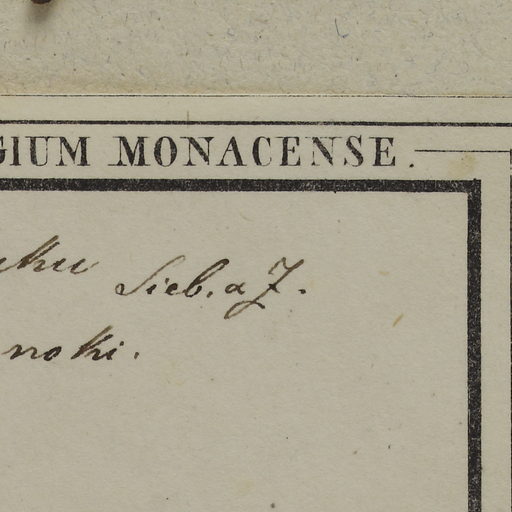 GIUM MONACENSE.
Sieb. a Z.
noki.